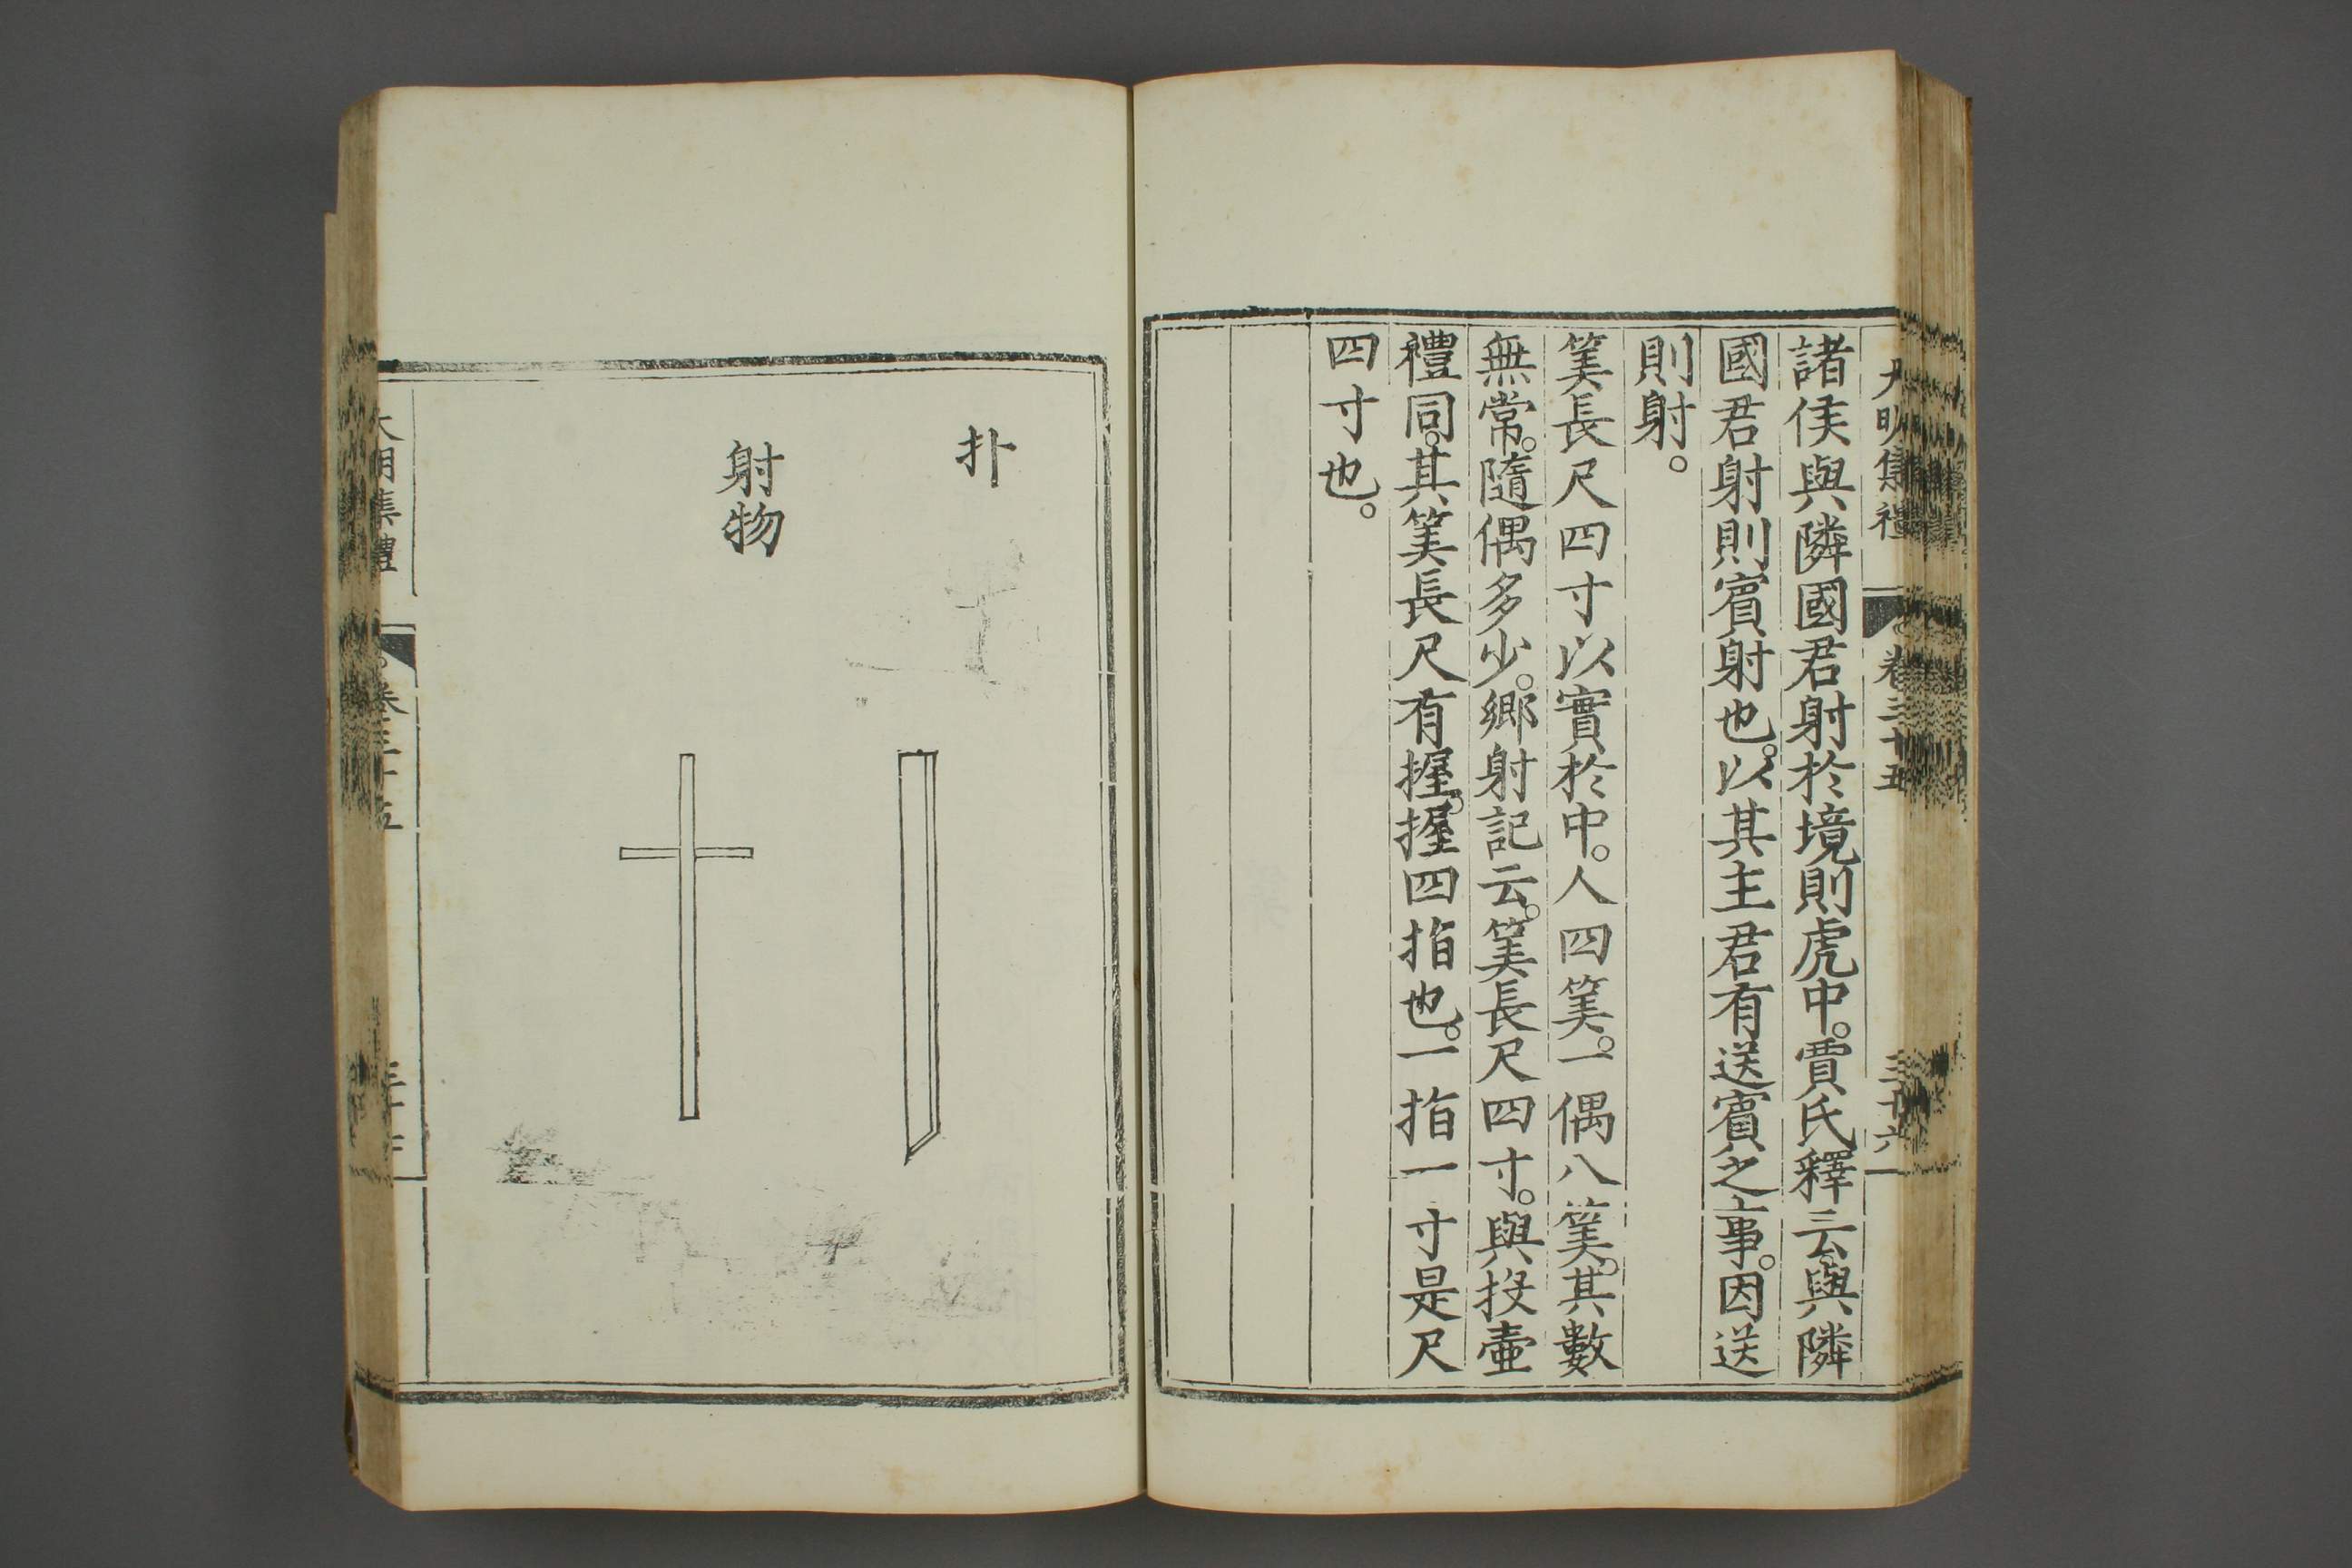 大明集禮
卷三十五
三十六
諸侯與隣國君射於境則虎中。賈氏釋云。與隣
國君射則賓射也。以其主君有送賓之事。因送
則射。
筭長尺四寸以實於中。人四筭。一偶八筭。其數
無常。隨偶多少。鄉射記云。筭長尺四寸。與投壷
禮同。其筭長尺有握。握四指也。一指一寸是尺
四寸也。
扑
射物
大明集禮
卷三十五